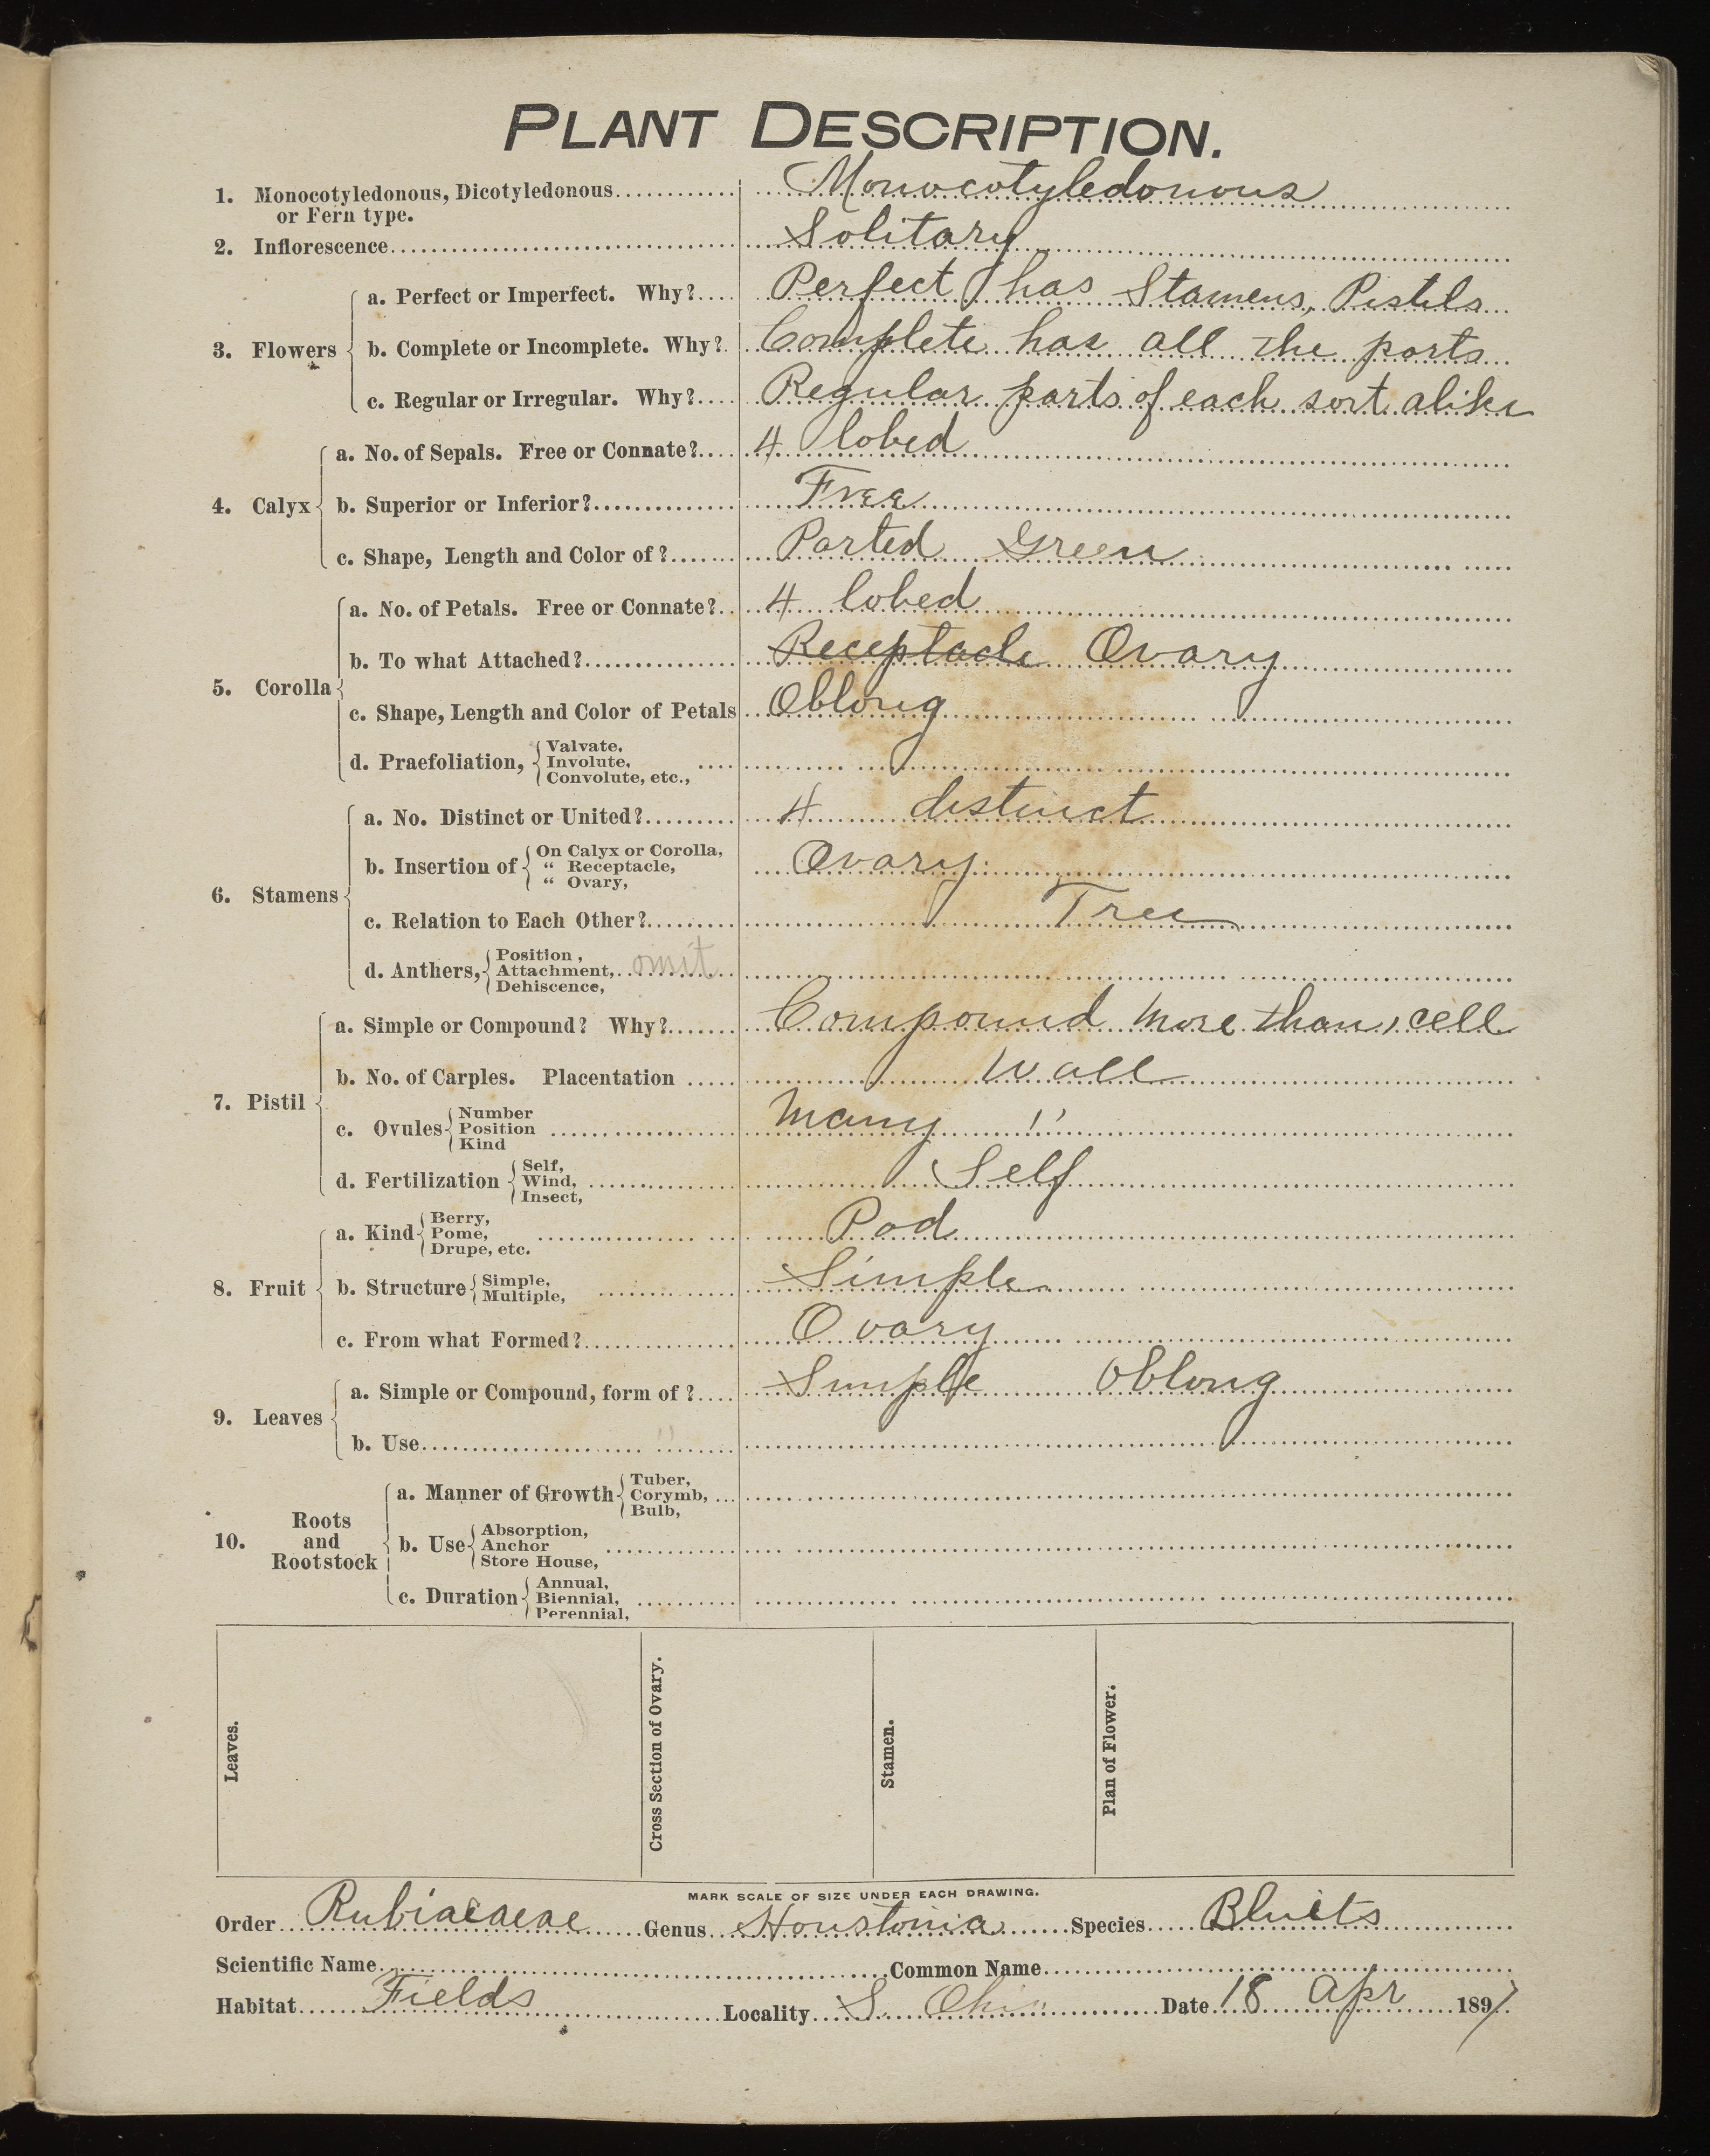 PLANT DESCRIPTION.
1. Monocotyledonous, Dicotyledonous or Fern type. Monocotyledonous
2. Inflorescence Solitary
3. Flowers
a. Perfect or Imperfect. Why? Perfect has Stamens, Pistils
b. Complete or Incomplete. Why? Complete has all the parts
c. Regular or Irregular. Why? Regular parts of each sort alike
4. Calyx
a. No. of Sepals. Free or Connate? 4 lobed
b. Superior or Inferior? Free
c. Shape, Length and Color of? Parted Green
5. Corolla
a. No. of Petals. Free or Connate? 4 lobed
b. To what Attached? Receptacle Ovary
c. Shape, Length and Color of Petals Oblong
d. Praefoliation, Valvate, Involute, Convolute, etc.,
6. Stamens
a. No. Distinct or United? 4 distinct
b. Insertion of On Calyx or Corolla, " Receptacle, " Ovary, Ovary.
c. Relation to Each Other? Free
d. Anthers, Position, Attachment, Dehiscence, omit
7. Pistil
a. Simple or Compound? Why? Compound more than 1 cell
b. No. of Carples. Placentation Wall
c. Ovules Number Position Kind Many "
d. Fertilization Self, Wind, Insect, Self
8. Fruit
a. Kind Berry, Pome, Drupe, etc. Pod
b. Structure Simple, Multiple, Simple
c. From what Formed? Ovary
9. Leaves
a. Simple or Compound, form of? Simple Oblong
b. Use
10. Roots and Rootstock
a. Manner of Growth Tuber, Corymb, Bulb,
b. Use Absorption, Anchor Store House,
c. Duration Annual, Biennial, Perennial,
Leaves.
Cross Section of Ovary.
Stamen.
Plan of Flower.
MARK SCALE OF SIZE UNDER EACH DRAWING.
Order Rubiaceae Genus Houstonia Species Bluets
Scientific Name Common Name
Habitat Fields Locality S. Ohio Date 18 Apr 1897